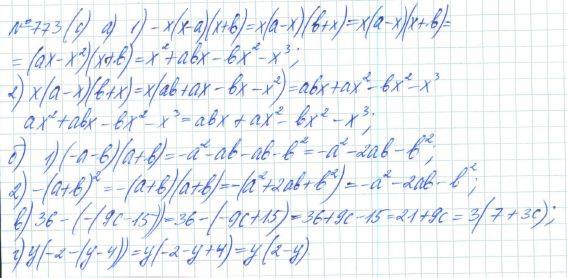 № 773 (с) а) 1) -x(x-a)(x+b)=x(a-x)(b+x)=x(a-x)(x+b)=
=(ax-x²)(x+b)=x²+abx-bx²-x³;
2) x(a-x)(b+x)=x(ab+ax-bx-x²)=abx+ax²-bx²-x³
ax²+abx-bx²-x³=abx+ax²-bx²-x³;
б) 1) (-a-b)(a+b)=-a²-ab-ab-b²=-a²-2ab-b²;
2) -(a+b)²=-(a+b)(a+b)=-(a²+2ab+b²)=-a²-2ab-b²;
в) 36-(-(9c-15))=36-(-9c+15)=36+9c-15=21+9c=3(7+3c);
г) y(-2-(y-4))=y(-2-y+4)=y(2-y).